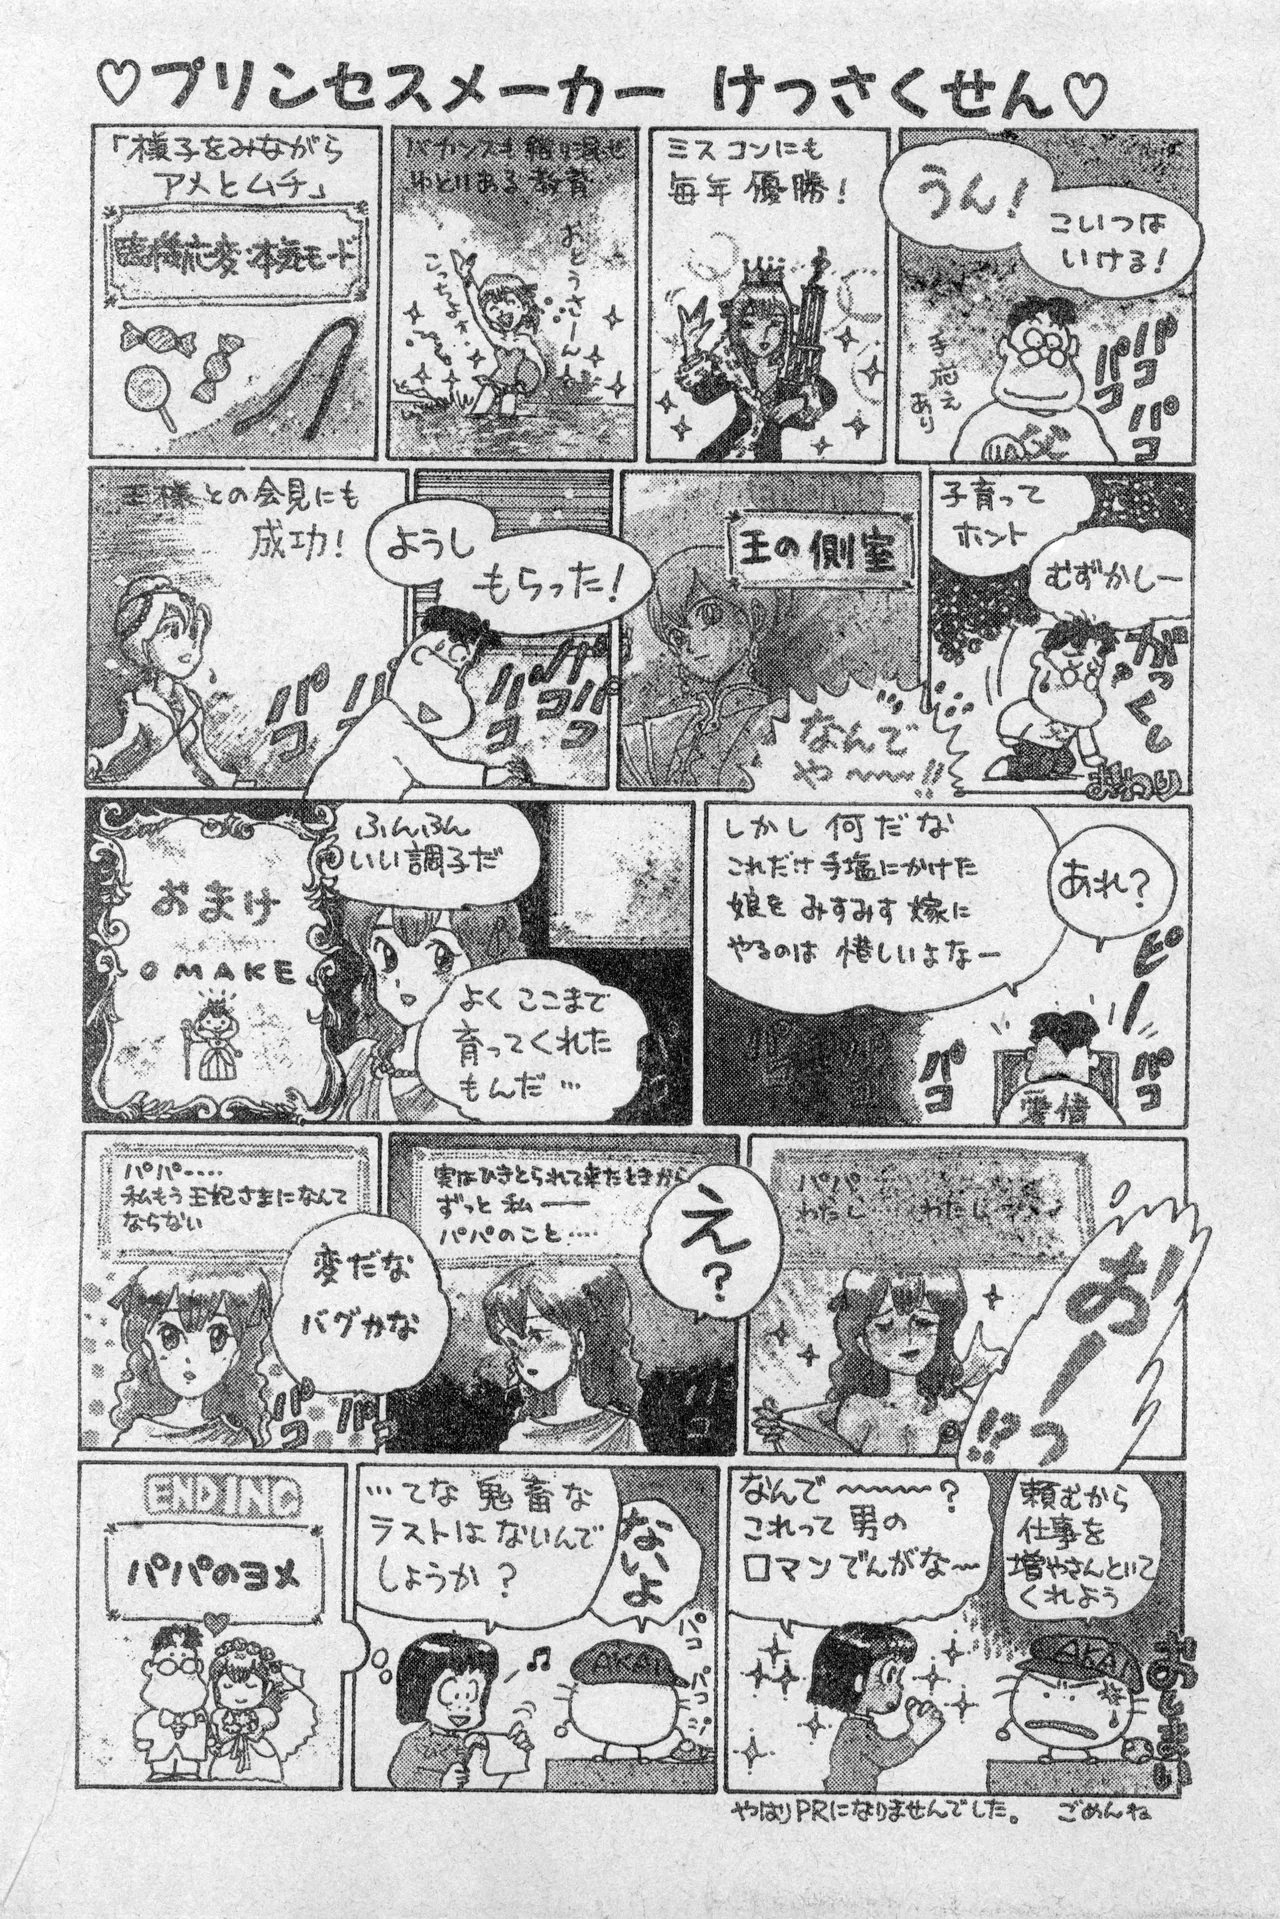 ♡プリンセスメーカー けっさくせん♡
「様子をみながら
アメとムチ」
臨機応変・本気モード
バカンスも織り混ぜ
ゆとりある教育
おとうさーん
こっちよォ
ミスコンにも
毎年優勝!
うん!
こいつは
いける!
手応え
あり
父
パコ
パコ
パコ
王様との会見にも
成功!
ようし
もらった!
パコ
パコ
パコ
王の側室
なんで
や〜〜〜!!
子育って
ホント
むずかしー
がっくし
おわり
おまけ
OMAKE
ふんふん
いい調子だ
よくここまで
育ってくれた
もんだ…
しかし何だな
これだけ手塩にかけた
娘をみすみす嫁に
やるのは惜しいよなー
あれ?
ピー
パコ
パコ
愛情
パパ‥‥
私もう王妃さまになんて
ならない
変だな
バグかな
パコ
パコ
実はひきとられて来たときから
ずっと私──
パパのこと‥‥
え?
パパ
わたし…わたし
お〜っ!!?
ENDING
パパのヨメ
…てな鬼畜な
ラストはないんで
しょうか?
ないよ
パコ
パコ
AKAI
なんで〜〜〜〜?
これって男の
ロマンでんがな〜
頼むから
仕事を
増やさんといて
くれよう
AKAI
おしまい
やはりPRになりませんでした。 ごめんね